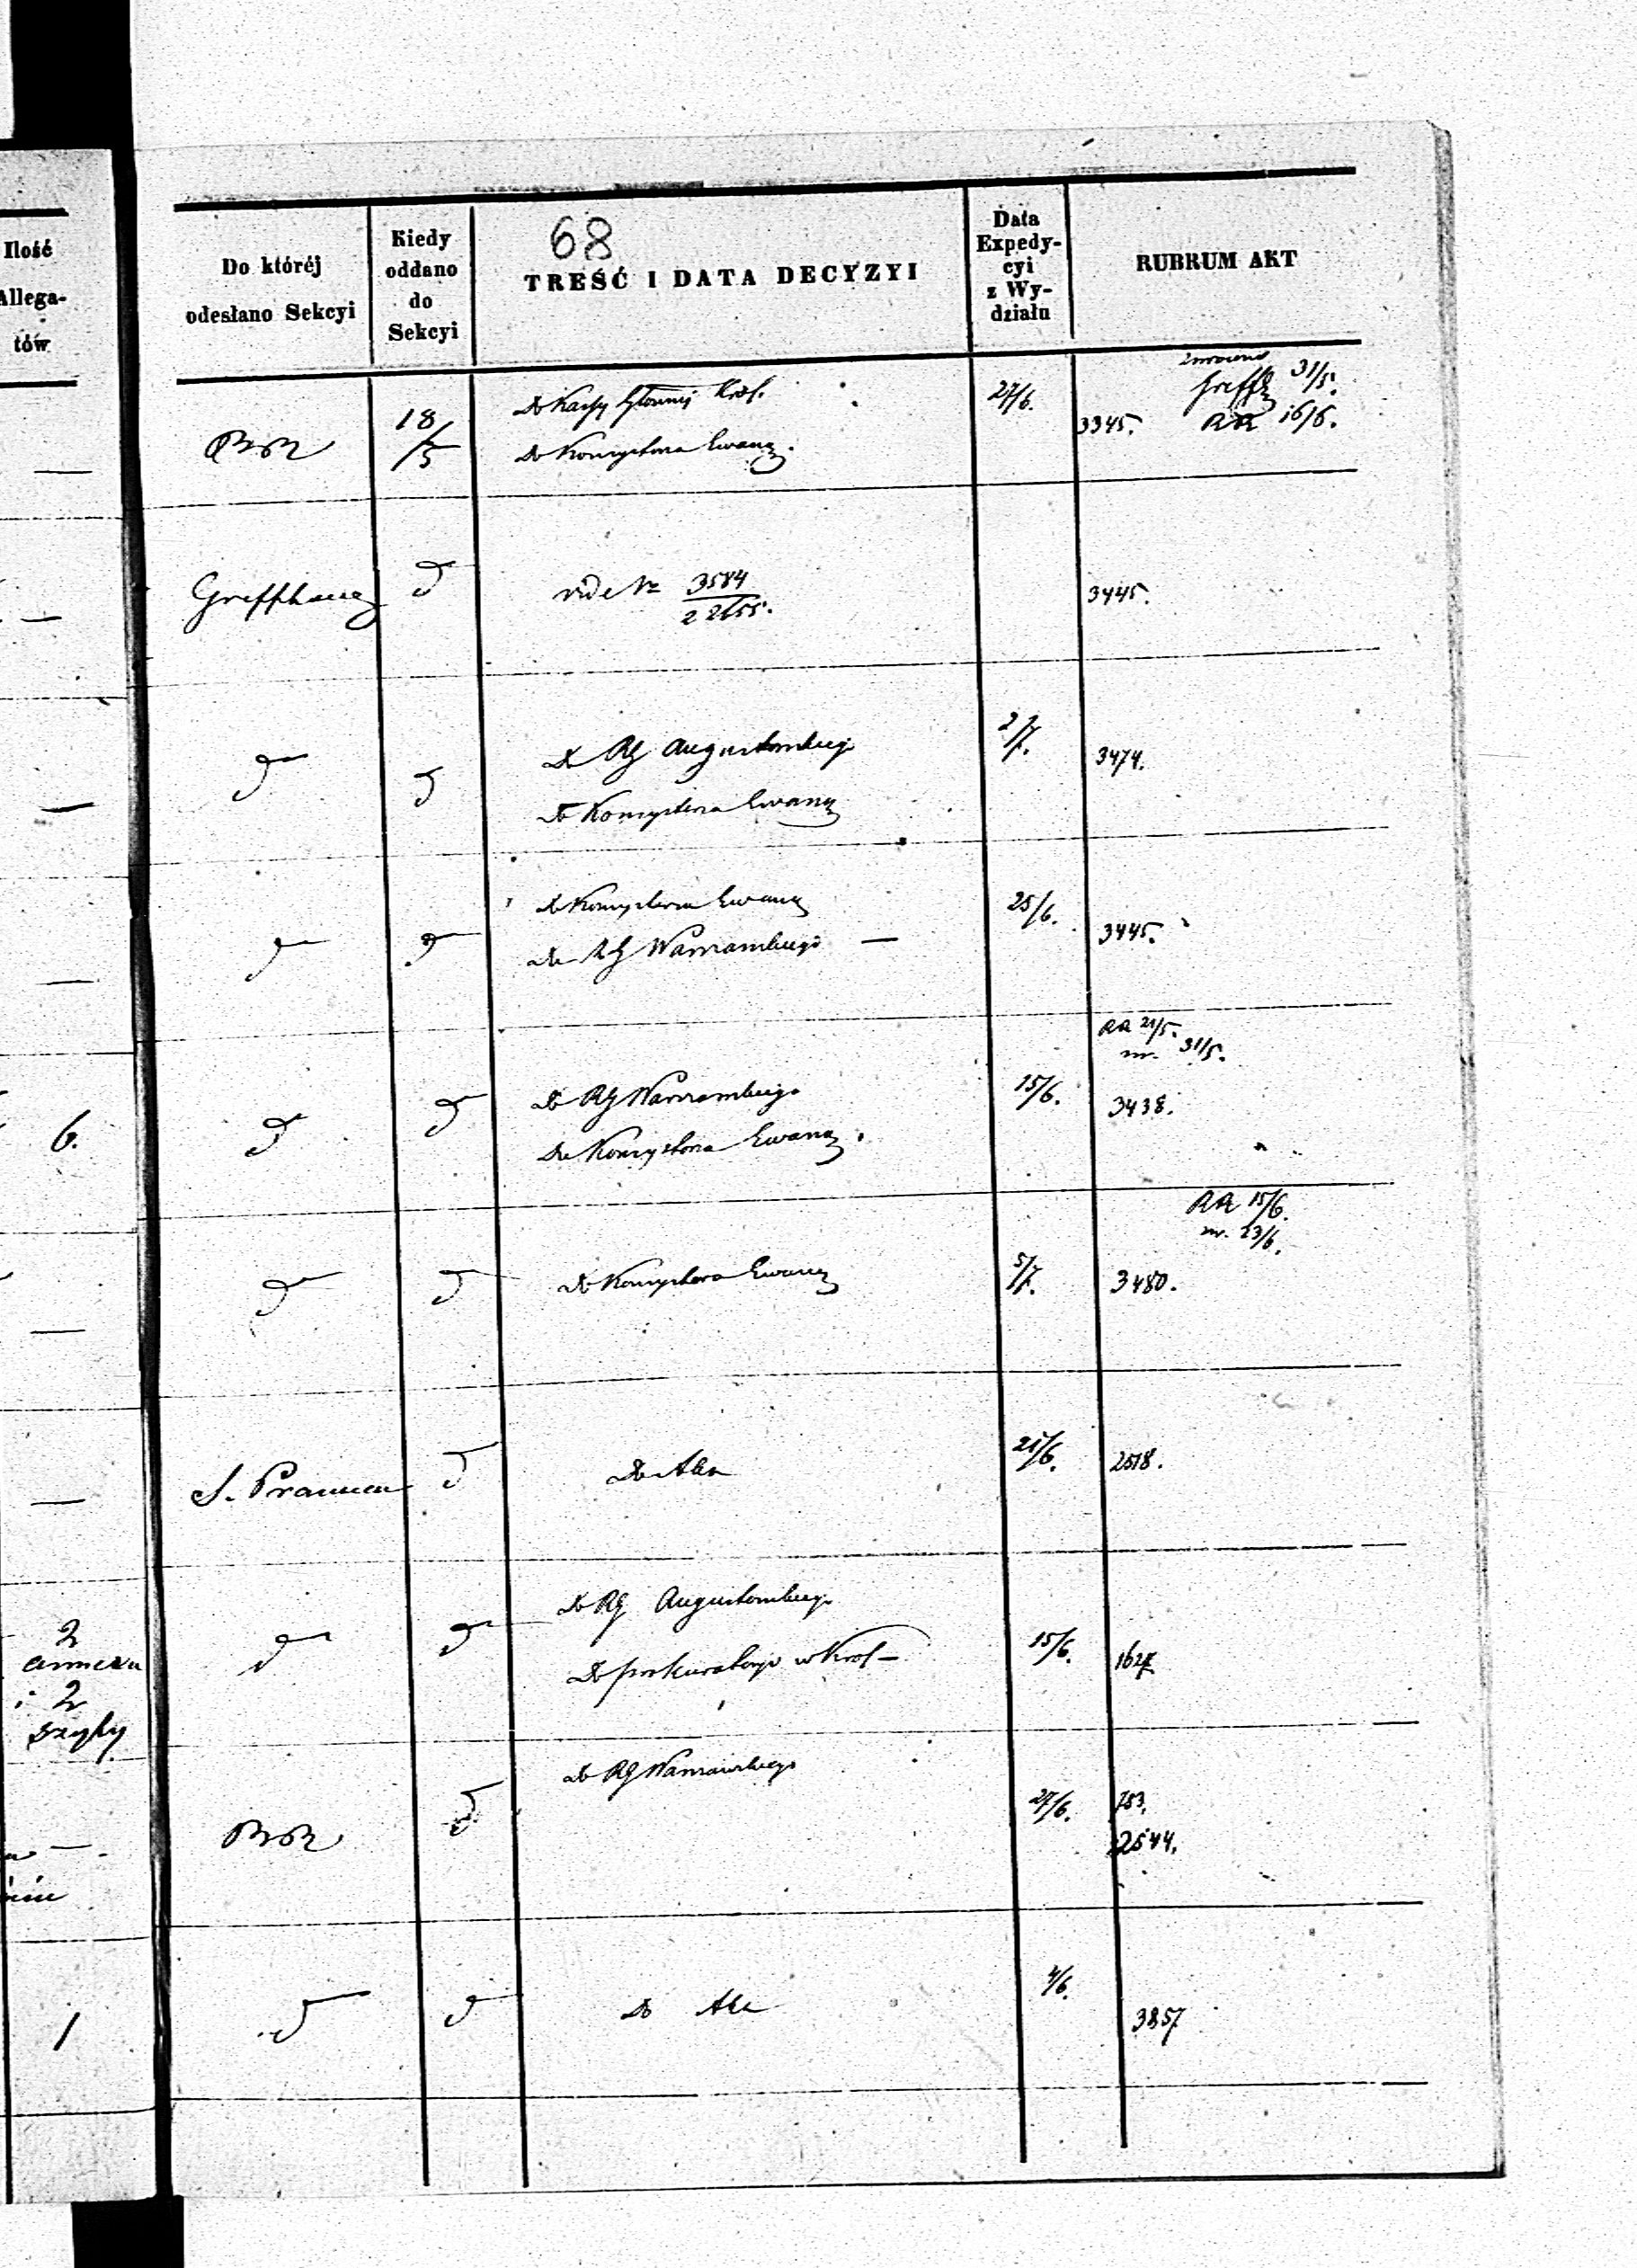 Ilość
Allega-
tów
Do któréj
odesłano Sekcyi
Kiedy
oddano
do
Sekcyi
68
TREŚĆ I DATA DECYZYI
Data
Expedy-
cyi
z Wy-
działu
RUBRUM AKT
—
18/5
Do Kassy Głównej Król.
Do Konsystorza Ewang.
27/6.
3345.
31/5.
RR 16/6.
—
d
vide Nr 3584
22655.
3445.
—
d
d
Do RG Augustowskiego
Do Konsystorza Ewang
2/7.
3474.
—
d
d
Do Konsystorza Ewang
Do RG Warszawskiego —
25/6.
3445.
6.
d
d
Do RG Warszawskiego
Do Konsystorza Ewang.
15/6.
RR 21/5.
zw. 31/5.
3438.
—
d
d
Do Konsystorza Ewang
5/7.
RR 15/6.
zw. 23/6.
3480.
—
d
Do Akt
21/6.
2518.
2
annexa
i 2
d
d
Do RG Augustowskiego
Do prokuratoryi w Król —
15/6.
1627
—
d
Do RG Warszawskiego
27/6.
753.
2544.
1
d
d
Do Akt
4/6.
3857